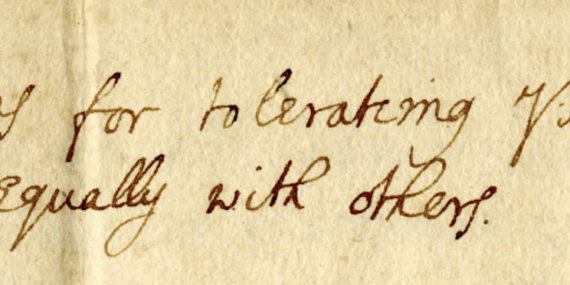 for tolerating
Equally with others.